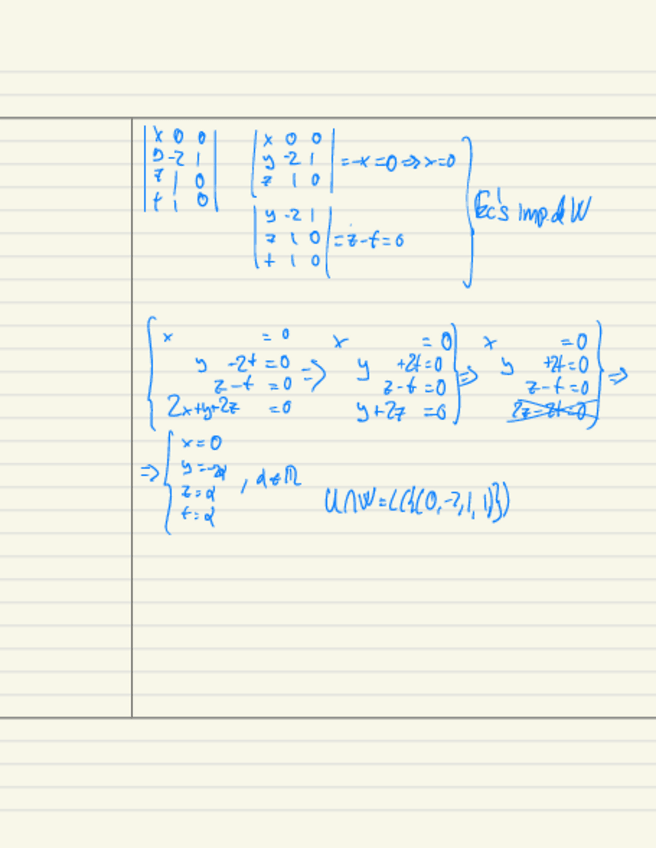 | x 0 0 |
| y -2 1 |
| z 1 0 |
| t 1 0 |
| x 0 0 |
| y -2 1 | = -x = 0 ⇒ x = 0
| z 1 0 |
| y -2 1 |
| z 1 0 | = z - t = 0
| t 1 0 |
Ec's imp. d W
x = 0
y -2t = 0
z - t = 0
2x+y+2z = 0
⇒
x = 0
y +2t = 0
z - t = 0
y + 2z = 0
⇒
x = 0
y +2t = 0
z - t = 0
2z - 2t = 0
⇒
⇒ x = 0
y = -2α
z = α , α ∈ ℝ
t = α
U∩W = L({(0, -2, 1, 1)})